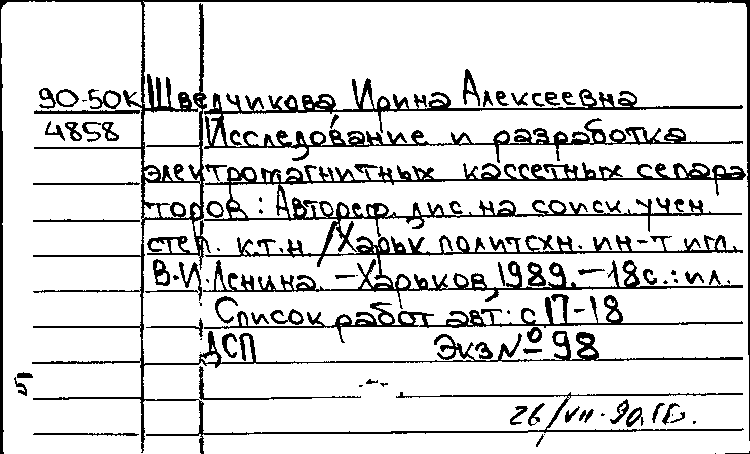 90-50К Шведчикова Ирина Алексеевна
4858 Исследование и разработка
электромагнитных кассетных сепара
торов: Автореф. дис. на соиск. учен.
степ. к.т.н. /Харьк. политехн. ин-т им.
В.И. Ленина. – Харьков, 1989. – 18 с.: ил.
Список работ авт: с 17-18
ДСП Экз № 98
26/VII-90